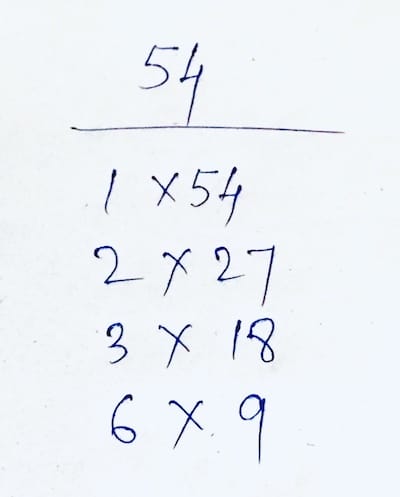 54
1 × 54
2 × 27
3 × 18
6 × 9